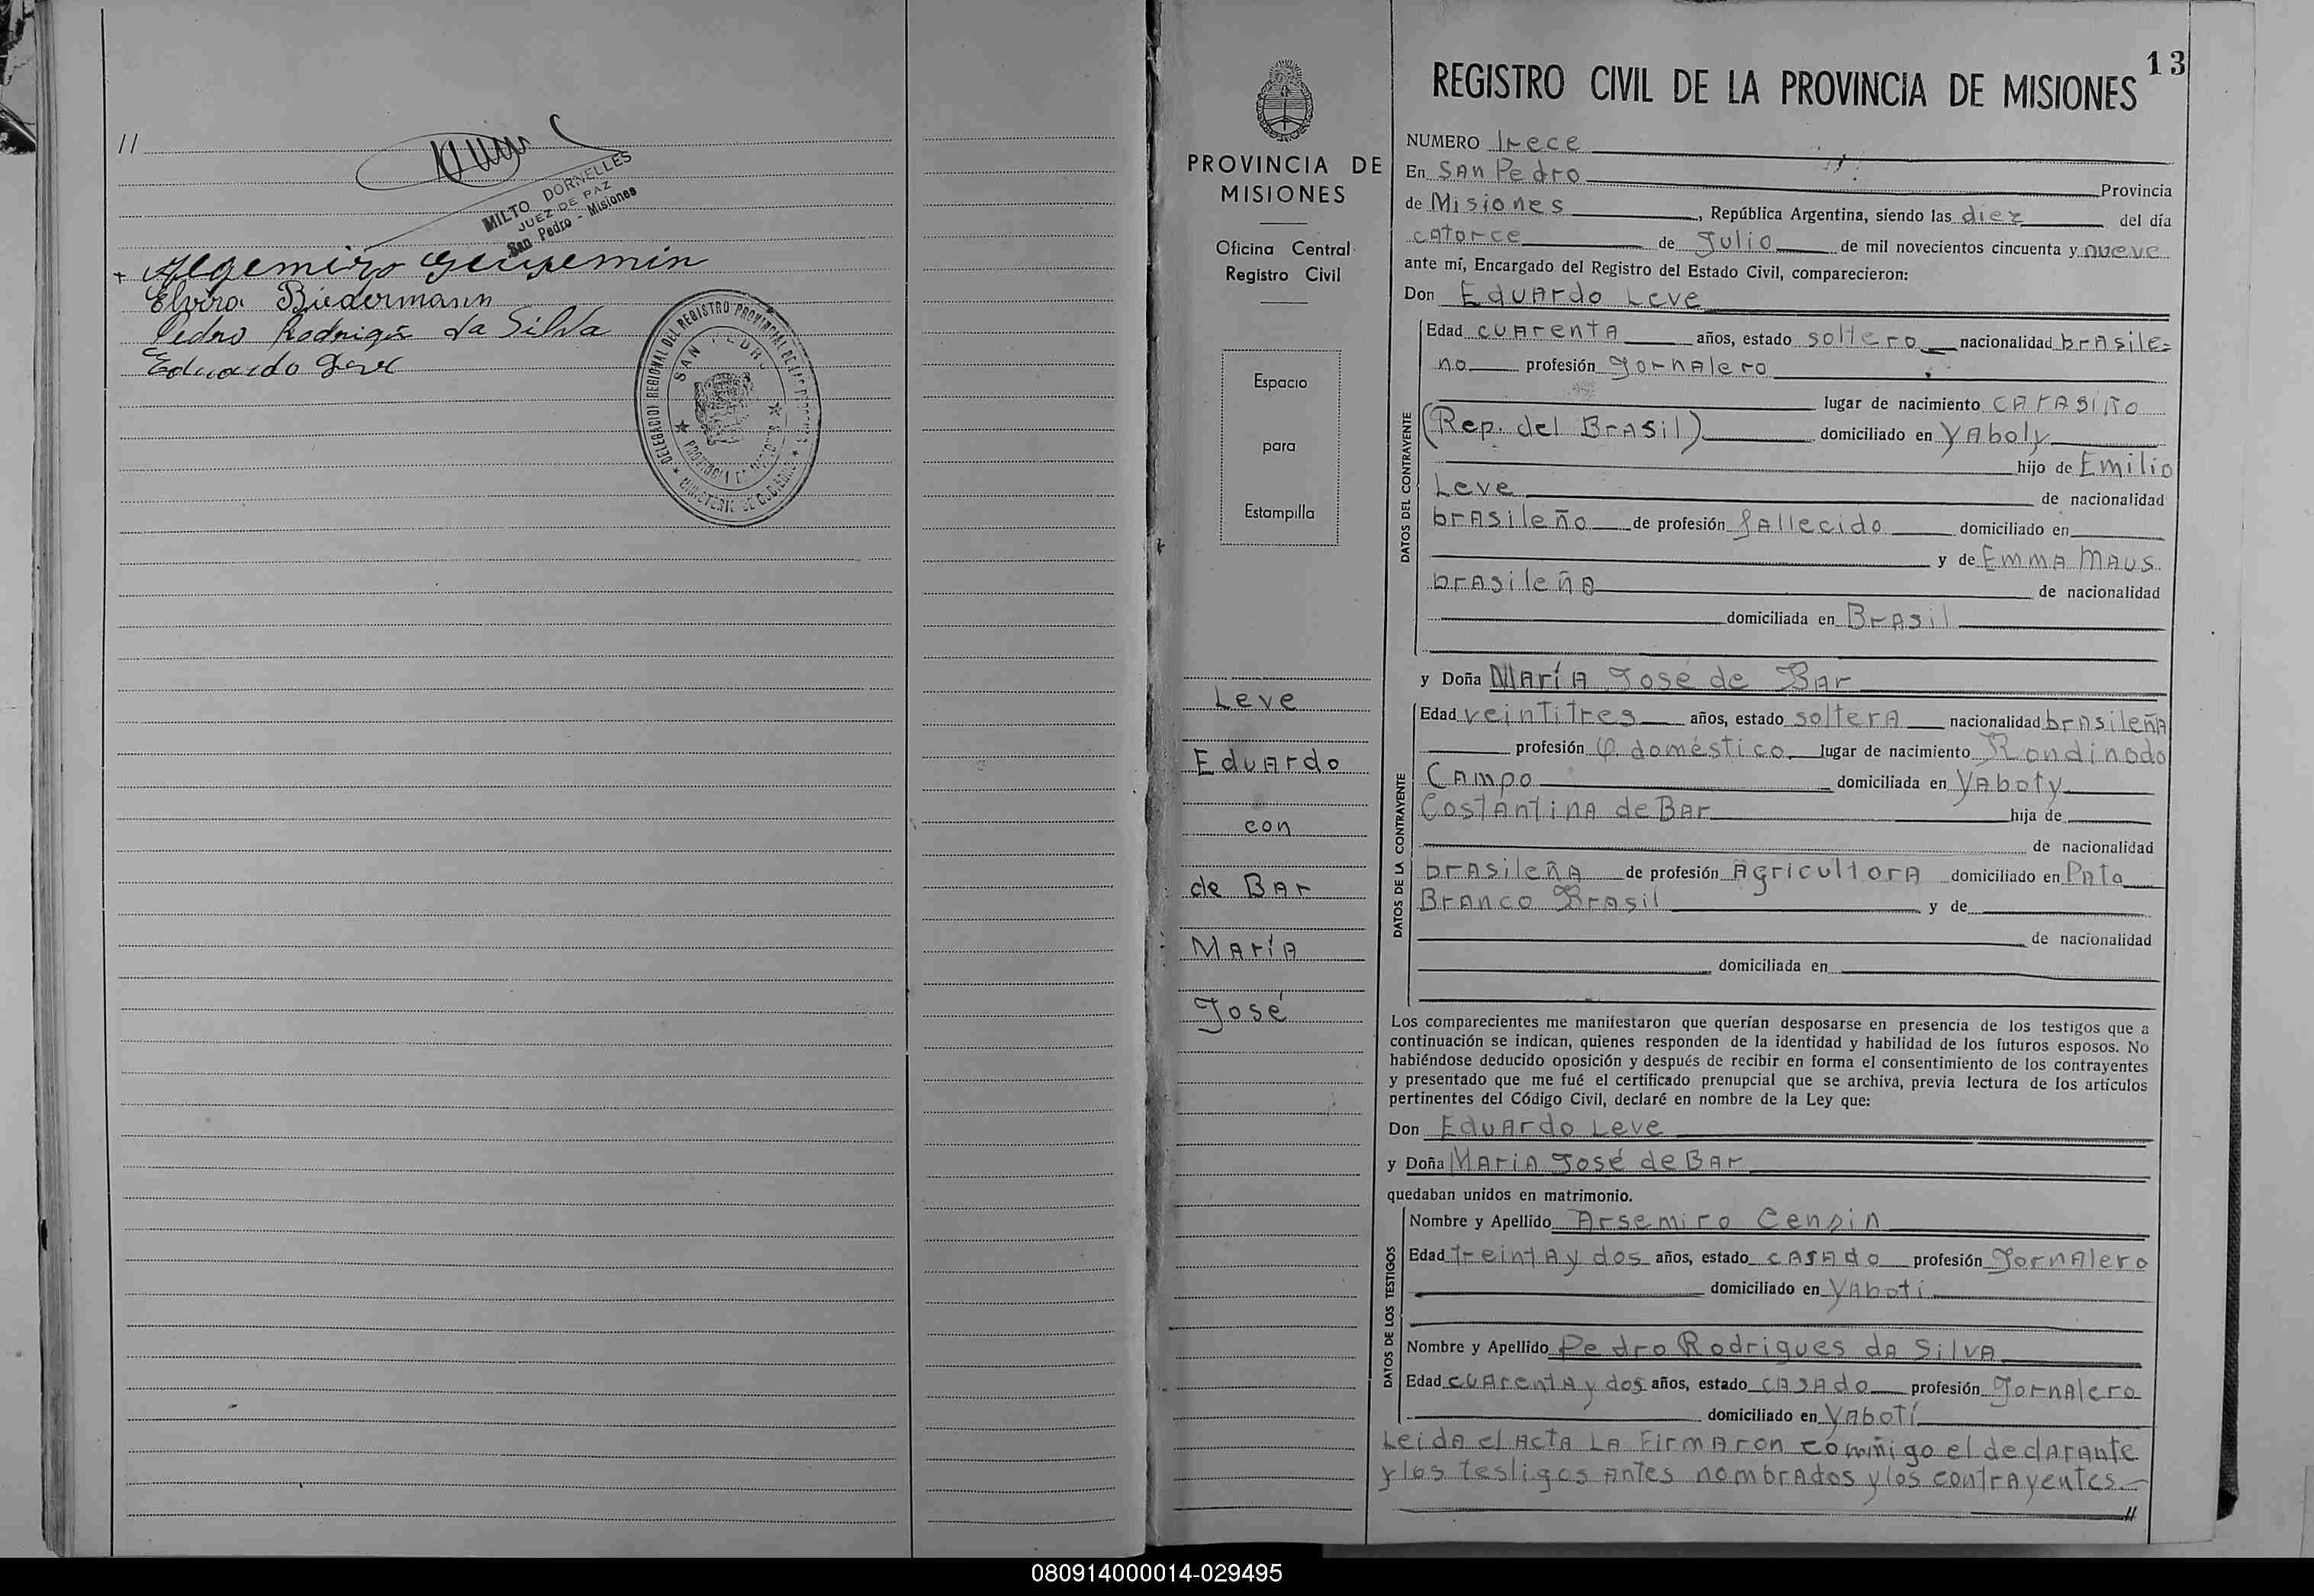 //
MILTO DORNELLES
JUEZ DE PAZ
San Pedro - Misiones
Elvira Biedermann
Pedro Rodrigues da Silva
Eduardo Leve
SAN PEDRO
13
REGISTRO CIVIL DE LA PROVINCIA DE MISIONES
PROVINCIA DE
MISIONES
Oficina Central
Registro Civil
Espacio
para
Estampilla
Leve
Eduardo
con
de Bar
María
José
NUMERO trece
En San Pedro Provincia
de Misiones, República Argentina, siendo las diez del día
catorce de Julio de mil novecientos cincuenta y nueve
ante mí, Encargado del Registro del Estado Civil, comparecieron:
Don Eduardo Leve
DATOS DEL CONTRAYENTE
Edad cuarenta años, estado soltero nacionalidad brasile=
no profesión Jornalero
lugar de nacimiento
(Rep. del Brasil) domiciliado en Yaboty
hijo de Emilio
Leve de nacionalidad
brasileño de profesión fallecido domiciliado en
y de Emma Maus
brasileña de nacionalidad
domiciliada en Brasil
y Doña María José de Bar
DATOS DE LA CONTRAYENTE
Edad veintitres años, estado soltera nacionalidad brasileña
profesión Q. doméstico lugar de nacimiento Rondinodo
Campo domiciliada en Yaboty
Costantina de Bar hija de
de nacionalidad
brasileña de profesión Agricultora domiciliado en Pato
Branco Brasil y de
de nacionalidad
domiciliada en
Los comparecientes me manifestaron que querían desposarse en presencia de los testigos que a
continuación se indican, quienes responden de la identidad y habilidad de los futuros esposos. No
habiéndose deducido oposición y después de recibir en forma el consentimiento de los contrayentes
y presentado que me fué el certificado prenupcial que se archiva, previa lectura de los artículos
pertinentes del Código Civil, declaré en nombre de la Ley que:
Don Eduardo Leve
y Doña Maria José de Bar
quedaban unidos en matrimonio.
DATOS DE LOS TESTIGOS
Nombre y Apellido Arsemiro
Edad treinta y dos años, estado casado profesión Jornalero
domiciliado en Yaboti
Nombre y Apellido Pedro Rodrigues da Silva
Edad cuarenta y dos años, estado casado profesión Jornalero
domiciliado en Yabotí
Leida el acta la Firmaron commigo el declarante
y los testigos antes nombrados y los contrayentes.-
//
080914000014-029495